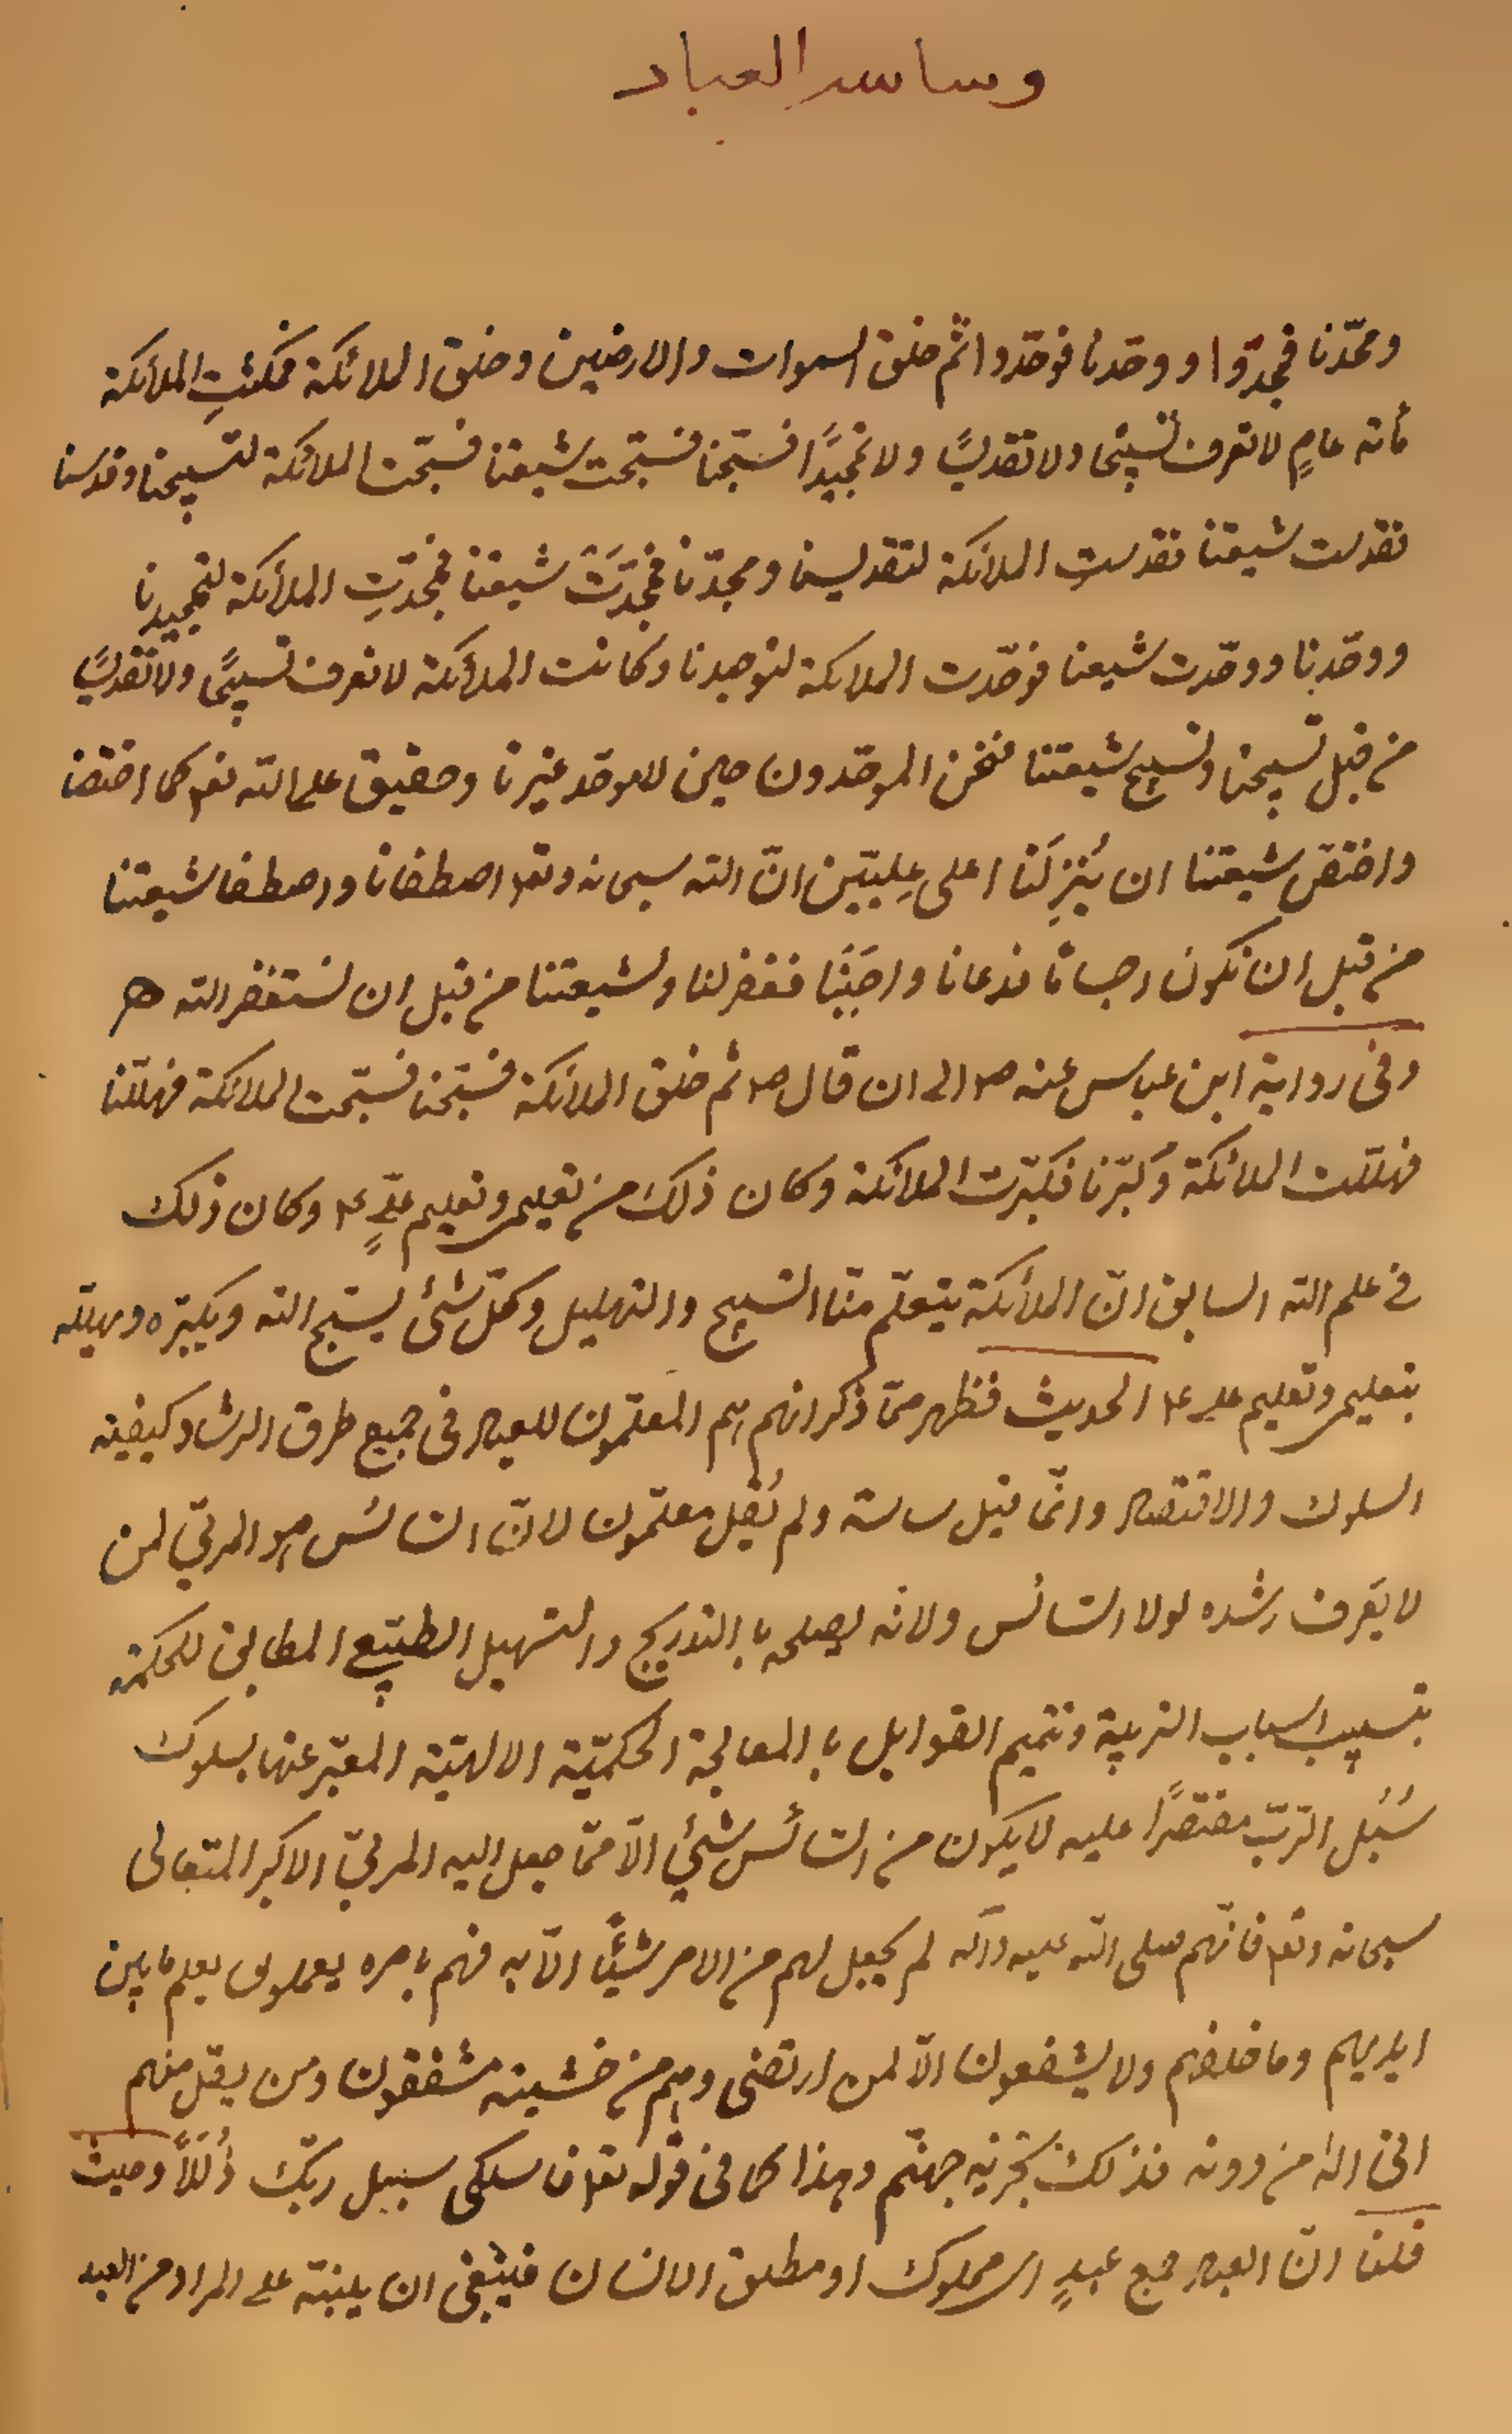 وساسة العباد
ومجّدنا فمجّدوا ووحّدنا فوحّدوا ثم خلق السموات والارضين وخلق الملائكة فمكثتِ الملائكة
مأته عامٍ لا تعرف تسبيحًا ولا تقديسًا ولا تمجيدًا فسبّحنا فسبّحت شيعتنا فسبّحت الملائكة لتسبيحنا وقدّسنا
فقدست شيعتنا فقدستِ الملائكة لتقديسنا ومجدّنا فمجدّتَ شيعتنا فمجدّتِ الملائكة لتمجيدنا
ووحّدنا ووحّدت شيعتنا فوحّدت الملائكة لتوحيدنا وكانت الملائكة لا تعرف تسبيحًا ولا تقديسًا
من قبل تسبيحنا وتسبيح شيعتنا فنحن الموحّدون حين لا موحّد غيرنا وحقيق على الله تعم كما اختصّنا
واختصّ شيعتنا ان يُنزِلَنا اعلى عِليّين انّ الله سبحانه وتعم اصطفانا واصطفا شيعتنا
من قبل ان نكون اجسامًا فدعانا واجَبَنا فغفر لنا ولشيعتنا من قبل ان نستغفر الله هـ
وفى رواية ابن عباس عنه صم الى ان قال صم ثم خلق الملائكة فسبّحنا فسبّحت الملائكة فهلّلنا
فهلّلت الملائكة وكبّرنا فكبّرت الملائكة وكان ذلك من تعليمى وتعليم علىٍّ عم وكان ذلك
فى علم الله السابق انّ الملائكة يتعلّم منّا التسبيح والتهليل وكلّ شئ يسبّح الله ويكبّره ويهلّله
بتعليمى وتعليم على عم الحديث فظهر ممّا ذكر انهم هم المعلّمون للعباد فى جميع طرق الرشاد وكيفيّة
السلوك والاقتصاد وانّما قيل ساسة ولم يُقل معلّمون لانّ السائس هو المربّى لمن
لا يَعرف رشده لولا السّائس ولانّه يصلحه با التدريج والتسهيل الطبيّعى المطابق للحكمة
بتسبيب اسباب التربية وتتميم القوابل با المعالجة الحكميّة الالهيّة المعبّر عنها بسلوك
سُبُل الرّبّ مقتصرًا عليه لا يكون من السّائس شيئ الّا ممّا جعل اليه المربّى الاكبر المتعالى
سبحانه وتعم فانّهم صلى الله عليه وآله لم يجعل لهم من الامر شيئًا الّا به فهم بامره يعملون يعلم ما بين
ايديهم وما خلفهم ولا يشفعون الّا لمن ارتضى وهم من خشيته مشفقون ومن يقل منهم
انى اله من دونه فذلك نجزيه جهنّم وهذا كما فى قوله تعم فاسلكى سبيل ربّك ذُلُلاً وحيث
قلنا انّ العباد جمع عبدٍ اى مملوك او مطلق الانسان فينبغى ان ينبّه على المراد من العبد